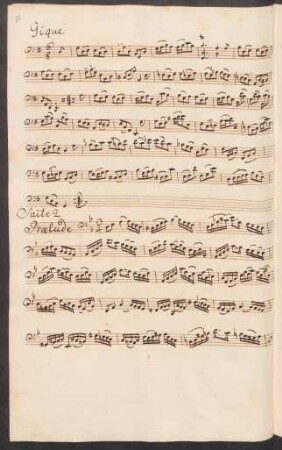 Gique
Suite 2
Prælude